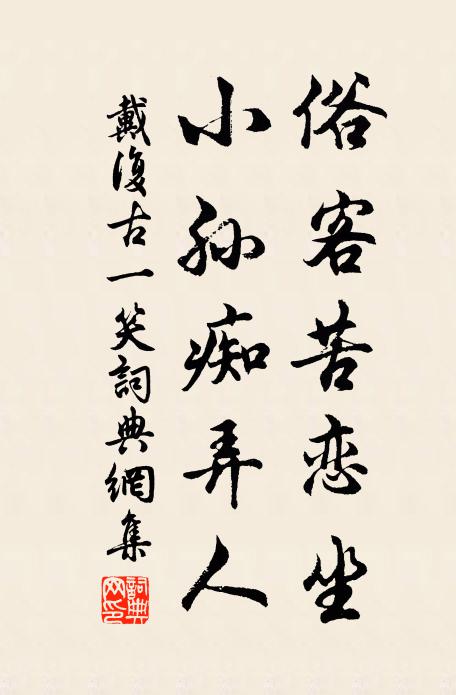 俗客苦恋坐
小孙痴弄人
戴復古一笑詞典網集
詞典网印